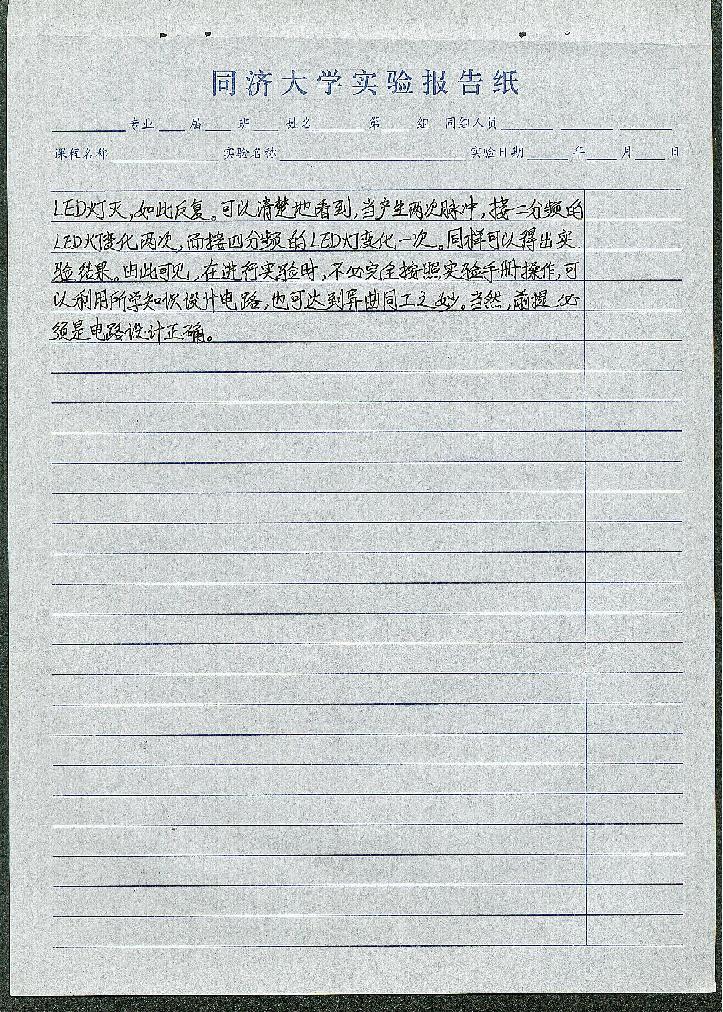 同济大学实验报告纸
专业 届 班 姓名 第 组 同组人员
课程名称 实验名称 实验日期 年 月 日
LED灯灭,如此反复。可以清楚地看到,当产生两次脉冲,接二分频的
LED灯变化两次,而接四分频的LED灯变化一次。同样可以得出实
验结果。由此可见,在进行实验时,不必完全按照实验手册操作,可
以利用所学知识设计电路,也可达到异曲同工之妙。当然,前提必
须是电路设计正确。